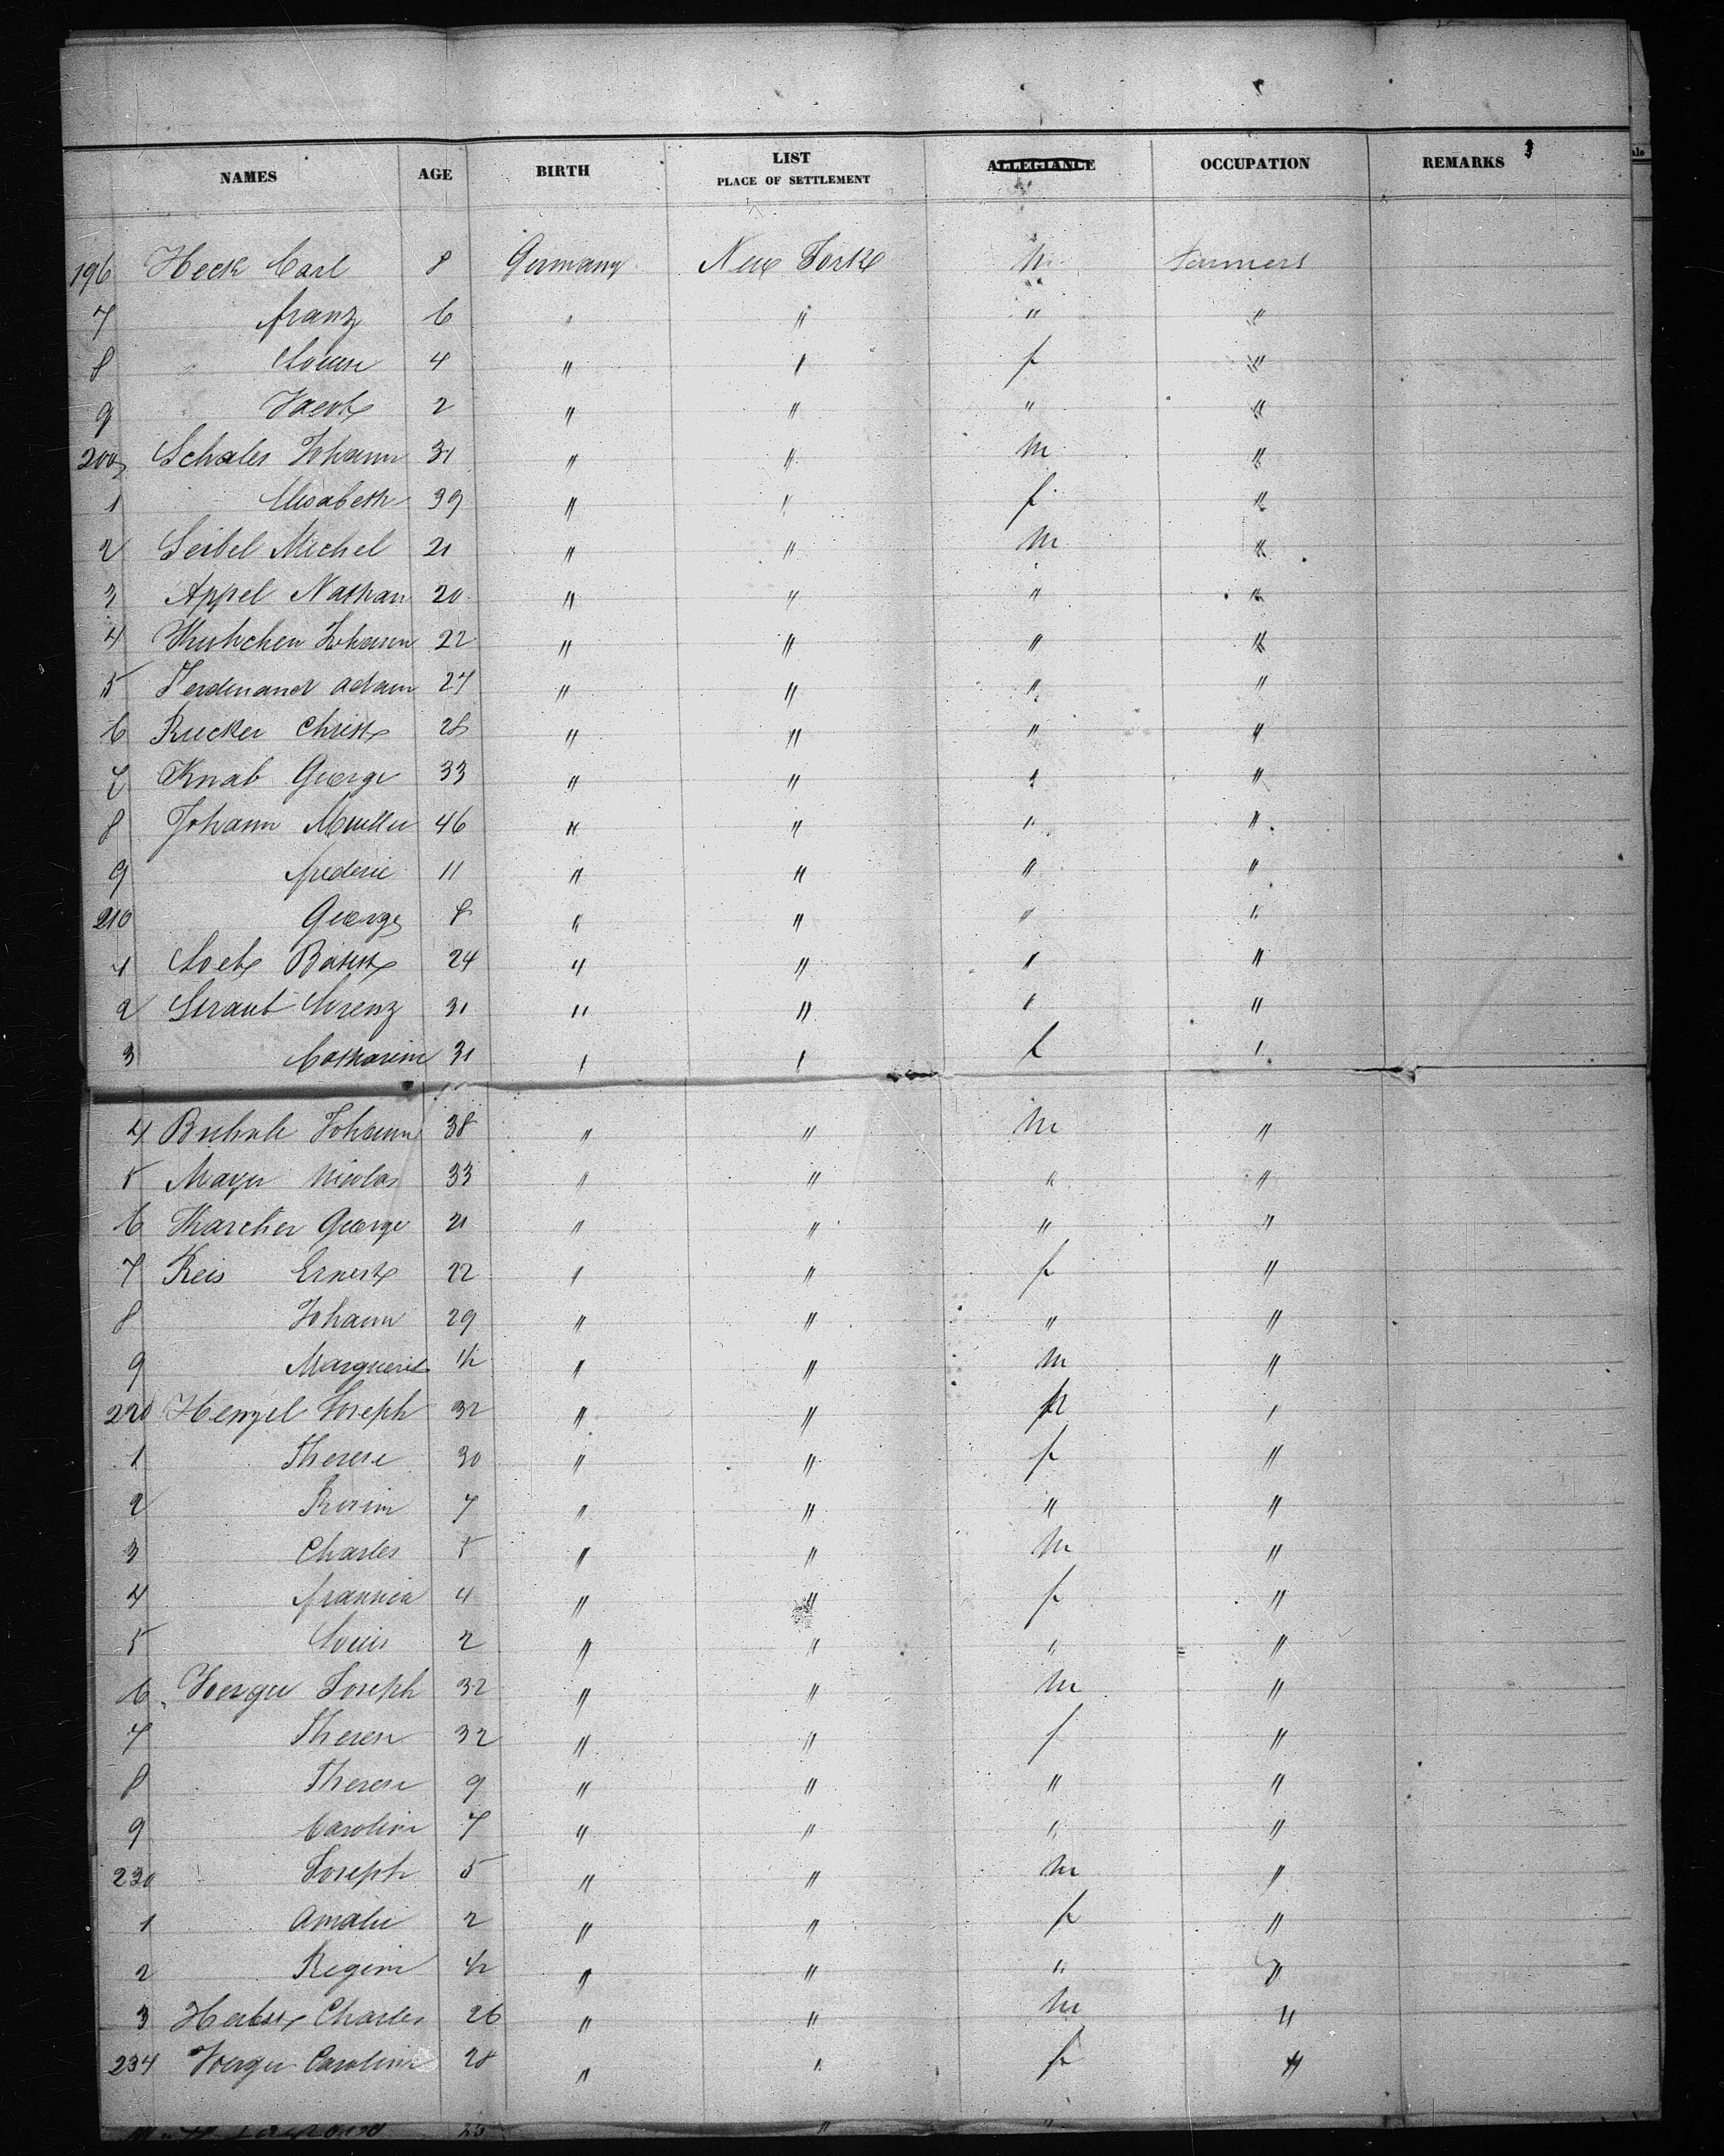 3
NAMES AGE BIRTH LIST PLACE OF SETTLEMENT ALLEGIANCE OCCUPATION REMARKS
196 Heck Carl 8 Germany New York m farmers
7 franz 6 " " " "
8 Louise 4 " " f "
9 Jacob 2 " " " "
200 Schaler Johann 31 " " m "
1 Elisabeth 39 " " f "
2 Seibel Michel 21 " " m "
3 Appel Nathan 20 " " " "
4 Johann 22 " " " "
5 Ferdinand adam 24 " " " "
6 Rucker Christ 28 " " " "
7 Knab George 33 " " " "
8 Johann Muller 46 " " " "
9 frederic 11 " " " "
210 George 8 " " " "
1 Loeb 24 " " " "
2 Straub Lorenz 31 " " " "
3 Catharine 31 " " f "
4 Johann 38 " " m "
5 Mayer Nicolas 33 " " " "
6 Karcher George 21 " " " "
7 Reis Ernest 22 " " f "
8 Johann 29 " " " "
9 Marguerit 1/2 " " m "
220 Henzel Joseph 32 " " "
1 Therese 30 " " f "
2 Rosine 7 " " " "
3 Charles 5 " " m "
4 4 " " f "
5 Louis 2 " " " "
6 Joerger Joseph 32 " " m "
7 Therese 32 " " f "
8 Therese 9 " " " "
9 Caroline 7 " " " "
230 Joseph 5 " " m "
1 Amalie 2 " " f "
2 Regine 1/2 " " " "
3 Herbst Charles 26 " " m "
234 Joerger Caroline 28 " " f "
25 " "